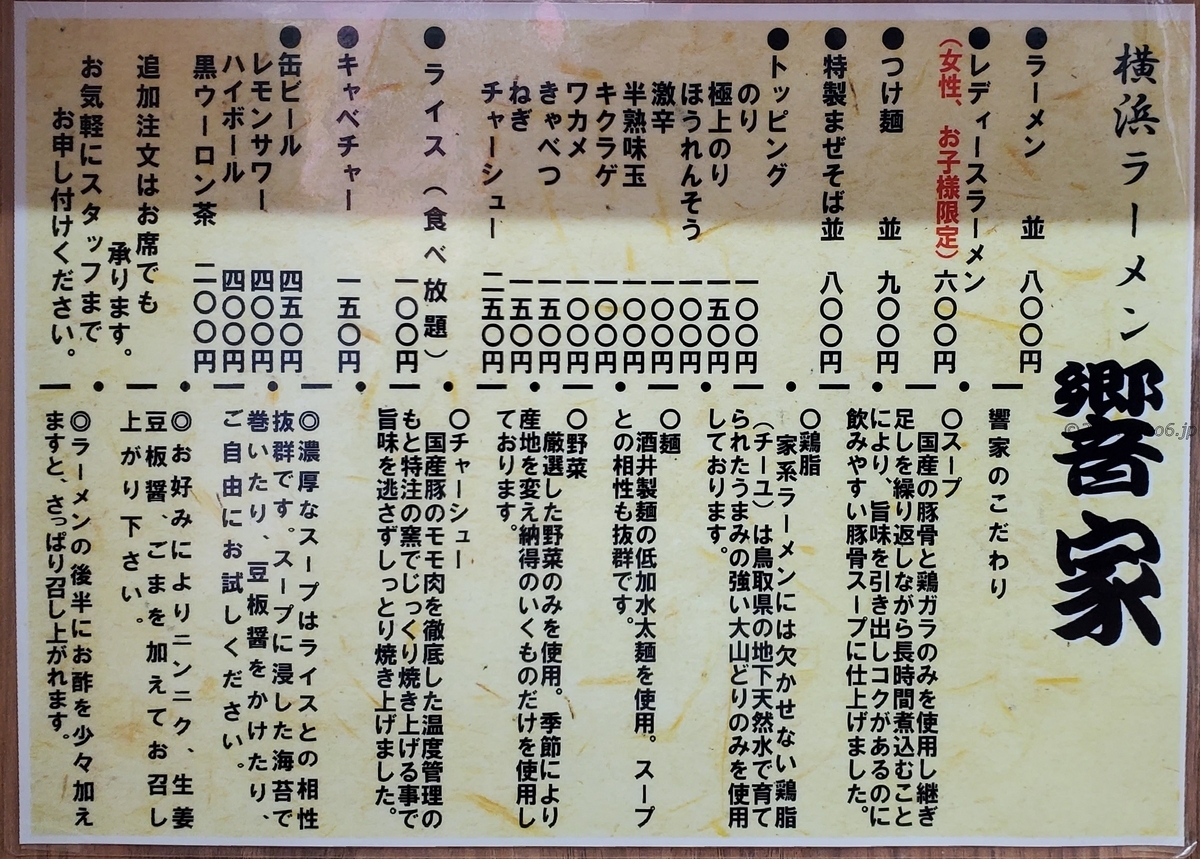 横浜ラーメン 響家
●ラーメン 並 八〇〇円
●レディースラーメン
(女性、お子様限定) 六〇〇円
●つけ麺 並 九〇〇円
●特製まぜそば 並 八〇〇円
●トッピング
のり 一〇〇円
極上のり 一五〇円
ほうれんそう 一〇〇円
激辛 一〇〇円
半熟味玉 一〇〇円
キクラゲ 一〇〇円
ワカメ 一〇〇円
きゃべつ 一五〇円
ねぎ 一五〇円
チャーシュー 二五〇円
●ライス(食べ放題)
一〇〇円
●キャベチャー 一五〇円
●缶ビール 四五〇円
レモンサワー 四〇〇円
ハイボール 四〇〇円
黒ウーロン茶 二〇〇円
追加注文はお席でも
承ります。
お気軽にスタッフまで
お申し付けください。
響家のこだわり
〇スープ
国産の豚骨と鶏ガラのみを使用し継ぎ
足しを繰り返しながら長時間煮込むこと
により、旨味を引き出しコクがあるのに
飲みやすい豚骨スープに仕上げました。
〇鶏脂
家系ラーメンには欠かせない鶏脂
(チーユ)は鳥取県の地下天然水で育て
られたうまみの強い大山どりのみを使用
しております。
〇麺
酒井製麺の低加水太麺を使用。スープ
との相性も抜群です。
〇野菜
厳選した野菜のみを使用。季節により
産地を変え納得のいくものだけを使用し
ております。
〇チャーシュー
国産豚のモモ肉を徹底した温度管理の
もと特注の窯でじっくり焼き上げる事で
旨味を逃さずしっとり焼き上げました。
◎濃厚なスープはライスとの相性
抜群です。スープに浸した海苔で
巻いたり、豆板醤をかけたり、
ご自由にお試しください。
◎お好みによりニンニク、生姜
豆板醤、ごまを加えてお召し
上がり下さい。
◎ラーメンの後半にお酢を少々加え
ますと、さっぱり召し上がれます。